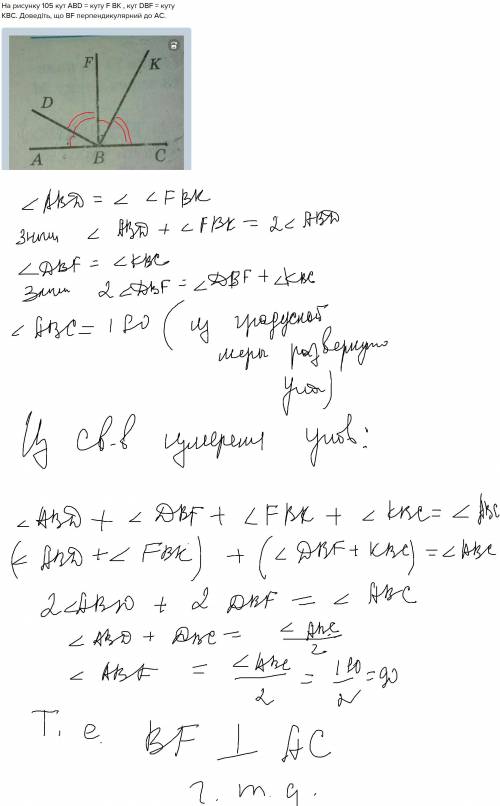 На рисунку 105 кут ABD = куту F BK , кут DBF = куту
KBC. Доведіть, що BF перпендикулярний до AC.
F
K
D
A
B
C
∠ABD = ∠ ∠FBK
Значит ∠ABD + ∠FBK = 2∠ABD
∠DBF = ∠KBC
Значит 2∠DBF = ∠DBF + ∠KBC
∠ABC = 180 ( из градусной
меры развернутого
угла)
Из св-в измерения углов:
∠ABD + ∠DBF + ∠FBK + ∠KBC = ∠ABC
(∠ABD + ∠FBK) + (∠DBF + KBC) = ∠ABC
2∠ABD + 2 DBF = ∠ABC
∠ABD + DBC = ∠ABC/2
∠ABF = ∠ABC/2 = 180/2 = 90
Т. е. BF ⊥ AC
ч. т. д.